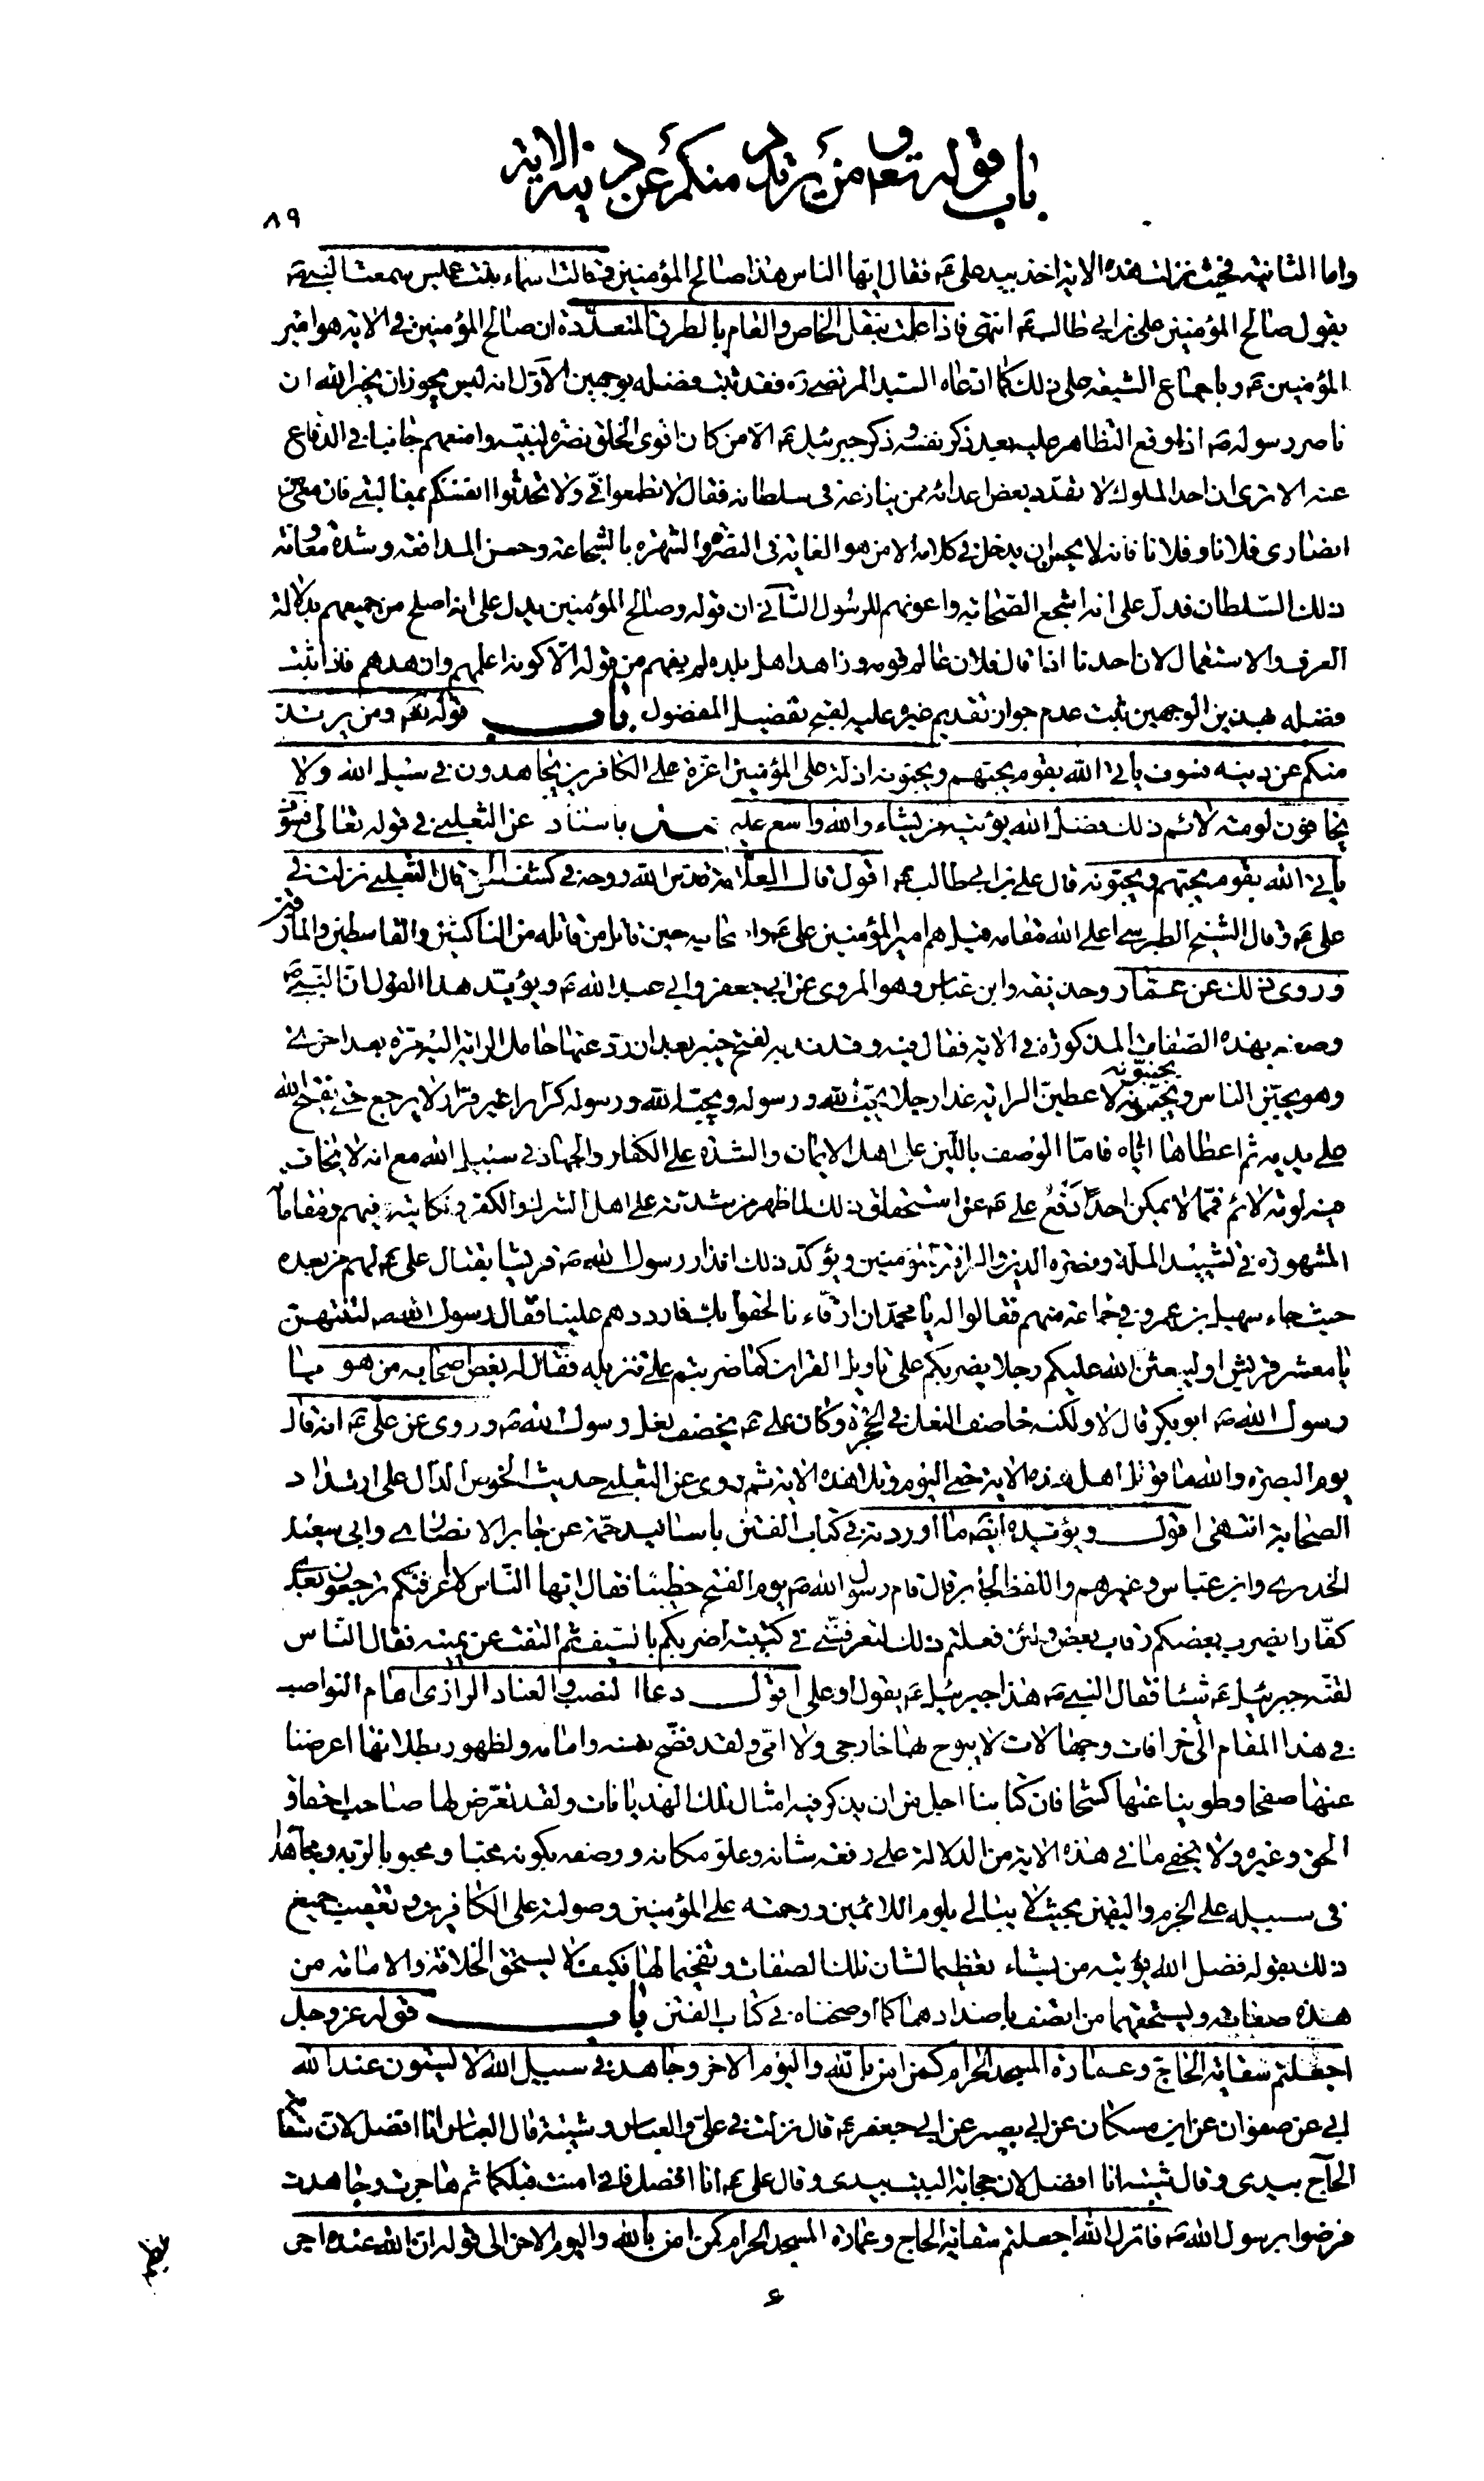 باب قوله تعم من يرتدد منكم عن دينه الاية
٨٩
واما الثانية فحيث نزلت هذه الاية اخذ بيد على ع فقال ايها الناس هذا صالح المؤمنين فقالت اسماء بنت عميس سمعت النبي ص
يقول صالح المؤمنين على بن ابي طالب ع انتهى فاذا علمت بنقل الخاص والعام بالطرق المتعددة ان صالح المؤمنين في الاية هو امير
المؤمنين ع وباجماع الشيعة على ذلك كما ادعاه السيد المرتضى ره فقد ثبت فضله بوجهين الاول انه ليس يجوز ان يخبر الله ان
ناصر رسوله ص اذا وقع التظاهر عليه بعد ذكر نفسه وذكر جبرئيل ع الا من كان اقوى الخلق نصرة لنبيه وامنعهم جانبا في الدفاع
عنه الا ترى ان احد الملوك لا تهدد بعض اعدائه ممن ينازعه في سلطانه فقال لا تطمعوا في ولا تحدثوا انفسكم بمغالبتي فان معي من
انصاري فلانا وفلانا فانه لا يحسن ان يدخل في كلامه الا من هو الغاية في النصرة والشهرة بالشجاعة وحسن المدافعة وشدة معونته
ذلك السلطان فدل على انه اشجع الصحابة واعونهم للرسول الثاني ان قوله وصالح المؤمنين يدل على انه اصلح من جميعهم بدلالة
العرف والاستعمال لان احدنا اذا قال فلان عالم قومه وزاهد اهل بلده لم يفهم من قوله الا كونه اعلمهم وازهدهم فاذا ثبت
فضله بهذين الوجهين ثبت عدم جواز تقديم غيره عليه لقبح تفضيل المفضول باب قوله تعم ومن يرتدد
منكم عن دينه فسوف ياتي الله بقوم يحبهم ويحبونه اذلة على المؤمنين اعزة على الكافرين يجاهدون في سبيل الله ولا
يخافون لومة لائم ذلك فضل الله يؤتيه من يشاء والله واسع عليم باسناد عن الثعلبي في قوله تعالى فسوف
ياتي الله بقوم يحبهم ويحبونه قال على بن ابي طالب ع اقول قال العلامة قدس الله روحه في كشف الحق قال الثعلبي نزلت في
على ع وقال الشيخ الطبرسي اعلى الله مقامه قيل هم امير المؤمنين على ع واصحابه حين قاتل من قاتله من الناكثين والقاسطين والمارقين
وروى ذلك عن عمار وحذيفة وابن عباس وهو المروي عن ابي جعفر وابي عبد الله ع ويؤيد هذا القول ان النبي ص
وصفه بهذه الصفات المذكورة في الاية فقال فيه وقد ندبه لفتح خيبر بعد ان رد عنها حامل الراية اليه مرة بعد اخرى
وهو يجبن الناس ويجبنونه لاعطين الراية غدا رجلا يحب الله ورسوله ويحبه الله ورسوله كرارا غير فرار لا يرجع حتى يفتح الله
على يديه ثم اعطاها اياه فاما الوصف باللين على اهل الايمان والشدة على الكفار والجهاد في سبيل الله مع انه لا يخاف
فيه لومة لائم فمما لا يمكن احدا دفع على ع عن استحقاق ذلك لما ظهر من شدته على اهل الشرك والكفر ونكايته فيهم ومقاماته
المشهورة في تشييد الملة ونصرة الدين والرافة بالمؤمنين ويؤكد ذلك انذار رسول الله ص قريشا بقتال على ع لهم من بعده
حيث جاء سهيل بن عمرو في جماعة منهم فقالوا له يا محمد ان ارقاءنا لحقوا بك فارددهم علينا فقال رسول الله ص لتنتهين
يا معشر قريش او ليبعثن الله عليكم رجلا يضربكم على تاويل القران كما ضربتم على تنزيله فقال له بعض اصحابه من هو يا
رسول الله ص ابو بكر قال لا ولكنه خاصف النعل في الحجرة وكان على ع يخصف نعل رسول الله ص وروى عن على ع انه قال
يوم البصرة والله ما قوتل اهل هذه الاية حتى اليوم وتلا هذه الاية ثم روى عن الثعلبي حديث الحوض الدال على ارتداد
الصحابة انتهى اقول ويؤيده ايضا ما اوردته في كتاب الفتن باسانيد جمة عن جابر الانصاري وابي سعيد
الخدري وابن عباس وغيرهم واللفظ لجابر قال قام رسول الله ص يوم الفتح خطيبا فقال ايها الناس لاعرفنكم ترجعون بعدي
كفارا يضرب بعضكم رقاب بعض ولئن فعلتم ذلك لتعرفنني في كتيبة اضربكم بالسيف ثم التفت عن يمينه فقال الناس
لقنه جبرئيل ع شيئا فقال النبي ص هذا جبرئيل ع يقول او على اقول دعا النصب والعناد الرازي امام النواصب
في هذا المقام الى خرافات وجهالات لا يبوح بها خارجي ولا امي ولقد فضح نفسه وامامه ولظهور بطلانها اعرضنا
عنها صفحا وطوينا عنها كشحا فان كتابنا اجل من ان يذكر فيه امثال تلك الهذيانات ولقد تعرض لها صاحب احقاق
الحق وغيره ولا يخفى ما في هذه الاية من الدلالة على رفعة شانه وعلو مكانه ووصفه بكونه محبا ومحبوبا لربه ومجاهدا
في سبيله على الجزم واليقين بحيث لا يبالي بلوم اللائمين ورحمته على المؤمنين وصولته على الكافرين وتعقيب جميع
ذلك بقوله فضل الله يؤتيه من يشاء تعظيما لشان تلك الصفات وتفخيما لها فكيف لا يستحق الخلافة والامامة من
هذه صفاته ويستحقهما من اتصف باضدادها كما اوضحناه في كتاب الفتن باب قوله عز وجل
اجعلتم سقاية الحاج وعمارة المسجد الحرام كمن امن بالله واليوم الاخر وجاهد في سبيل الله لا يستوون عند الله
ابي عن صفوان عن ابن مسكان عن ابي بصير عن ابي جعفر ع قال نزلت في على والعباس وشيبة قال العباس انا افضل لان سقاية
الحاج بيدي وقال شيبة انا افضل لان حجابة البيت بيدي وقال على ع انا افضل فاني امنت قبلكما ثم هاجرت وجاهدت
فرضوا برسول الله ص فانزل الله اجعلتم سقاية الحاج وعمارة المسجد الحرام كمن امن بالله واليوم الاخر الى قوله ان الله عنده اجر